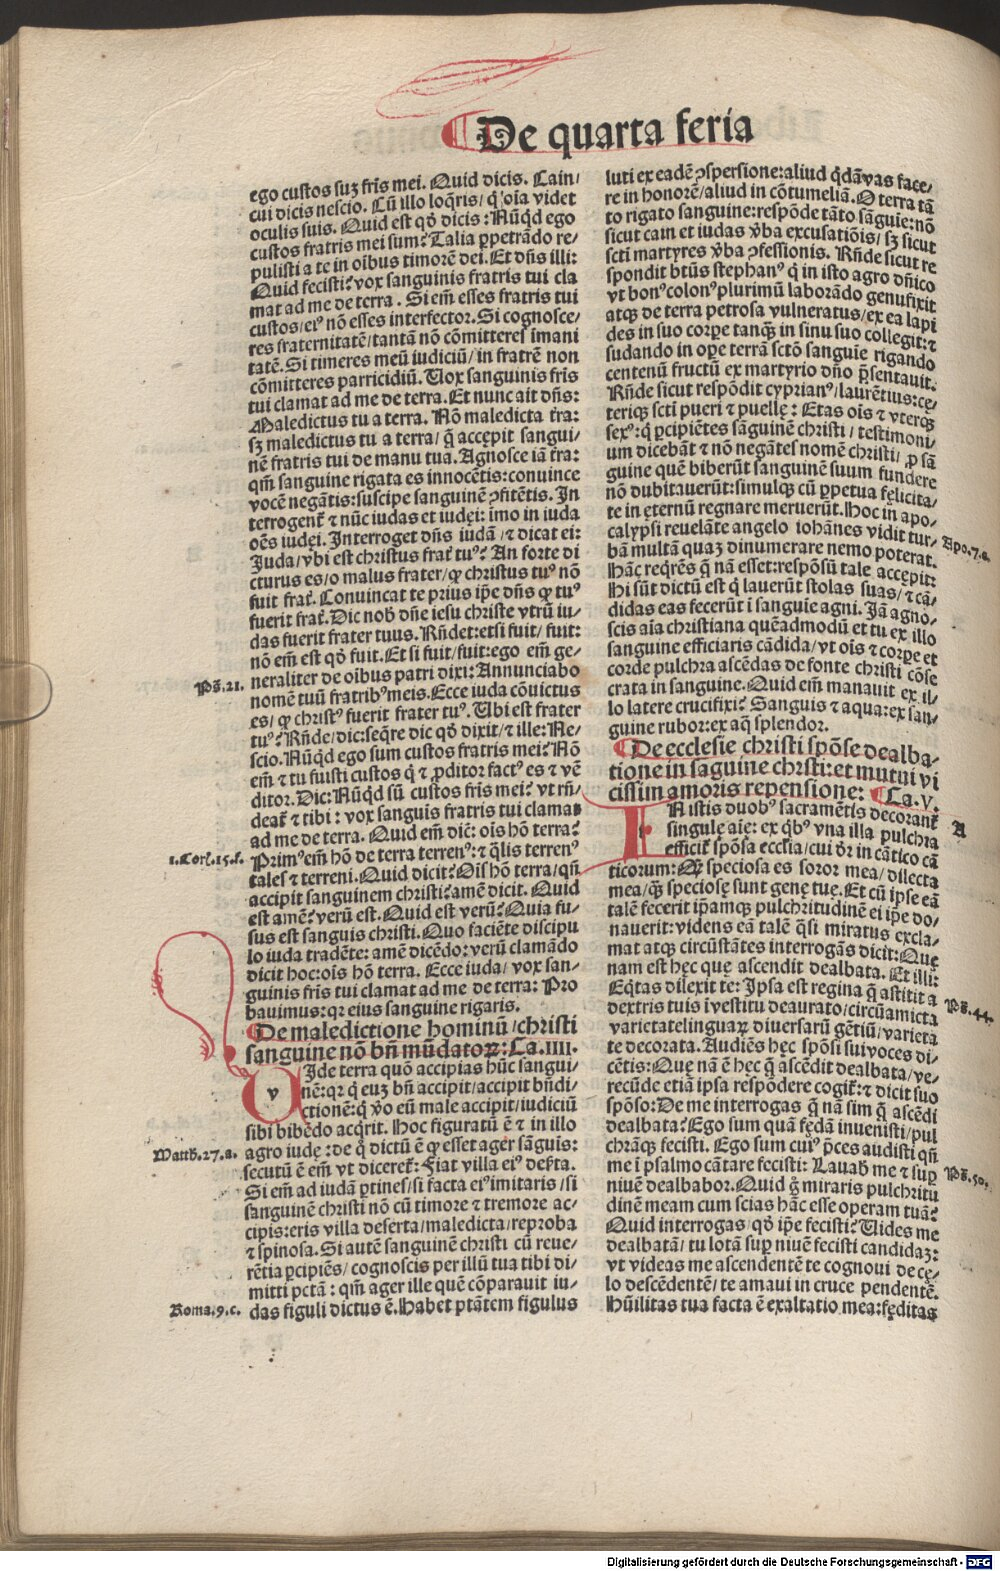 De quarta feria
ego custos suꝫ fr̄is mei. Quid dicis. Cain/
cui dicis nescio. Cū illo loq̄ris/ q̇ oīa videt
oculis suis. Quid est qḋ dicis: Nūqd ego
custos fratris mei sum? Talia ꝑpetrādo re/
pulisti a te in oībus timorē dei. Et dn̄s illi:
Quid fecisti? vox sanguinis fratris tui cla
mat ad me de terra. Si em̄ esses fratris tui
custos/ eiꝰ nō esses interfector. Si cognosce/
res fraternitatē/ tantā nō cōmitteres īmani
tatē. Si timeres meū iudiciū/ in fratrē non
cōmitteres parricidiū. Vox sanguinis fr̄is
tui clamat ad me de terra. Et nunc ait dn̄s:
Maledictus tu a terra. Nō maledicta t̄ra:
sꝫ maledictus tu a terra/ q̄ accępit sangui/
nē fratris tui de manu tua. Agnosce iā t̄ra:
qm̄ sanguine rigata es innocētis: convince
vocē negātis: suscipe sanguinē ꝯfitētis. In
terrogent̄ ⁊ nūc iudas et iudęi: imo in iuda
oēs iudęi. Interroget dn̄s iudā/ ⁊ dicat ei:
Juda/ vbi est christus frat̄ tuꝰ? An forte di
cturus es/ o malus frater/ ꝙ christus tuꝰ nō
fuit frat̄. Convincat te prius ip̄e dn̄s ꝙ tuꝰ
fuerit frat̄. Dic nob̄ dn̄e iesu christe vtrū iu/
das fuerit frater tuus. Rn̄det: etsi fuit/ fuit:
nō em̄ est qḋ fuit. Et si fuit/ fuit: ego em̄ ge/
neraliter de oībus patri dixi: Annunciabo
Ps̄. 21.
nomē tuū fratribꝰ meis. Ecce iuda cōvictus
es/ ꝙ christꝰ fuerit frater tuꝰ. Vbi est frater
tuꝰ? Rn̄de/ dic: seq̄re dic qḋ dixit/ ⁊ ille: Ne/
scio. Nūqd ego sum custos fratris mei? Nō
em̄ ⁊ tu fuisti custos q̇ ⁊ ꝓditor factꝰ es ⁊ vē
ditor. Dic: Nūqd sū custos fr̄is mei? vt rn̄/
deat̄ ⁊ tibi: vox sanguis fratris tui clamat
ad me de terra. Quid em̄ dic̄: oīs hō terra?
1. Cor̄. 15. f.
Primꝰ em̄ hō de terra terrenꝰ: ⁊ q̄lis terrenꝰ
tales ⁊ terreni. Quid dicit? Oīs hō terra/ qn̄
accipit sanguinem christi? amē dicit. Quid
est amē? verū est. Quid est verū? Quia fu/
sus est sanguis christi. Quo faciēte discipu
lo iuda tradēte: amē dicēdo: verū clamādo
dicit hoc: oīs hō terra. Ecce iuda/ vox san/
guinis fr̄is tui clamat ad me de terra: Pro
bavimus: qꝛ eius sanguine rigaris.
De maledictione hominū/ christi
sanguine nō bn̄ mūdatoꝝ: Ca. IIII.
v
Ide terra quō accipias hūc sangui/
nē: qꝛ q̇ euꝫ bn̄ accipit/ accipit bn̄di/
ctionē: q̇ v̇o eū male accipit/ iudiciū
sibi bibēdo acq̇rit. Hoc figuratū ē ⁊ in illo
Matth. 27. a.
agro iudę: de q̇ dictū ē ꝙ esset ager sāguis:
secutū ē em̄ vt diceret̄: Fiat villa eiꝰ def̄ta.
Si em̄ ad iudā ꝑtines/ si facta eiꝰ imitaris/ si
sanguinē christi nō cū timore ⁊ tremore ac/
cipis: eris villa deserta/ maledicta/ reproba
⁊ spinosa. Si autē sanguinē christi cū reue/
rētia ꝑcipiēs/ cognoscis per illū tua tibi di/
mitti pctā: qm̄ ager ille quē cōparauit iu/
Roma. 9. c.
das figuli dictus ē. Habet ptātem figulus
luti ex eadē ꝯspersione: aliud q̇dā vas face/
re in honorē/ aliud in cōtumeliā. O terra tā
to rigato sanguine: respōde tāto sāguīe: nō
sicut cain et iudas v̇ba excusatiōis/ sꝫ sicut
scti martyres v̇ba ꝯfessionis. Rn̄de sicut re
spondit btūs stephanꝰ q̇ in isto agro dn̄ico
vt bonꝰ colonꝰ plurimū laborādo genufixit
atqꝫ de terra petrosa vulneratus/ ex ea lapi
des in suo corpe tanqꝫ in sinu suo collegit: ⁊
sudando in oꝑe terrā sctō sanguīe rigando
centenū fructū ex martyrio dn̄o p̄sentauit.
Rn̄de sicut respōdit cyprianꝰ/ laurētius: cę/
teriqꝫ scti pueri ⁊ puellę: Etas oīs ⁊ vterqꝫ
sexꝰ: q̇ ꝑcipiētes sāguinē christi/ testimoni/
um dicebāt ⁊ nō negātes nomē christi/ ꝓ sā
guine quē biberūt sanguinē suum fundere
nō dubitauerūt: simulqꝫ cū ꝑpetua fęlicita/
te in ęternū regnare meruerūt. Hoc in apo/
calypsi reuelāte angelo iohānes vidit tur/
Apo. 7. c.
bā multā quaꝫ dinumerare nemo poterat.
Hāc req̇rēs q̄ nā esset: respōsū tale accępit:
Hi sūt dictū est q̇ lauerūt stolas suas/ ⁊ cā/
didas eas fecerūt ī sanguīe agni. Jā agno/
scis aīa christiana quēadmodū et tu ex illo
sanguine efficiaris cādida/ vt oīs ⁊ corpe et
corde pulchra ascēdas de fonte christi cōse
crata in sanguine. Quid em̄ manauit ex il/
lo latere crucifixi? Sanguis ⁊ aqua: ex san/
guine rubor: ex aq̄ splendor.
De ecclesie christi spōse dealba/
tione in sāguine chr̄sti: et mutui vi
cissim amoris repensione: Ca. V.
A
N istis duobꝰ sacramētis decorant̄
singulę aīę: ex q̇bꝰ vna illa pulchra
efficit̄ spōsa ecclīa/ cui d̄r in cātico cā
ticorum: Qꝫ speciosa es soror mea/ dilecta
mea/ qꝫ speciosę sunt genę tuę. Et cū ipse eā
talē fecerit ip̄amqꝫ pulchritudinē ei ip̄e do/
nauerit: videns eā talē q̄si miratus excla/
mat atqꝫ circūstātes interrogās dicit: Quę
nam est hęc quę ascendit dealbata. Et illi:
Eq̄tas dilexit te: Ipsa est regina q̄ astitit a
Ps̄. 44.
dextris tuis ī vestitu deaurato/ circūamicta
varietate linguaꝝ diuersarū gētiū/ varieta
te decorata. Audiēs hęc spōsi sui voces di/
cētis: Quę nā ē hęc q̄ ascēdit dealbata/ ve/
recūde etiā ipsa respōdere cogit̄: ⁊ dicit suo
spōso: De me interrogas q̄ nā sim q̄ ascēdi
dealbata? Ego sum quā fędā inuenisti/ pul
chrāqꝫ fecisti. Ego sum cuiꝰ p̄ces audisti qn̄
me ī psalmo cātare fecisti: Lauab̄ me ⁊ suꝑ
Ps̄. 50.
niuē dealbabor. Quid g̊ miraris pulchritu
dinē meam cum scias hāc esse operam tuā?
Quid interrogas/ qḋ ip̄e fecisti? Vides me
dealbatā/ tu lotā suꝑ niuē fecisti candidaꝫ:
vt videas me ascendentē te cognoui de cę/
lo descēdentē/ te amaui in cruce pendentē.
Hūilitas tua facta ē exaltatio mea: fęditas
Digitalisierung gefördert durch die Deutsche Forschungsgemeinschaft - DFG